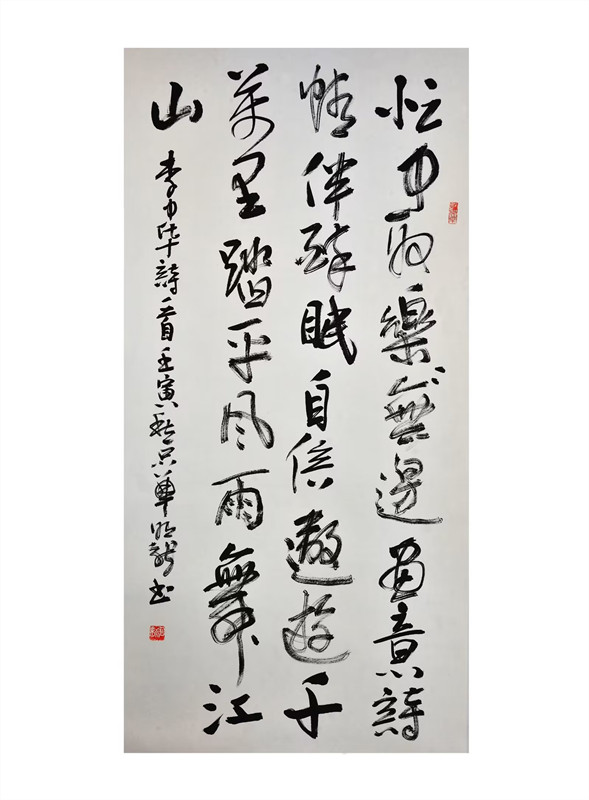 忙中取樂無邊畫意詩
情伴醉眠自信遨遊千
萬里踏平風雨舞江
山 李中華詩一首壬寅秋京華 龍書